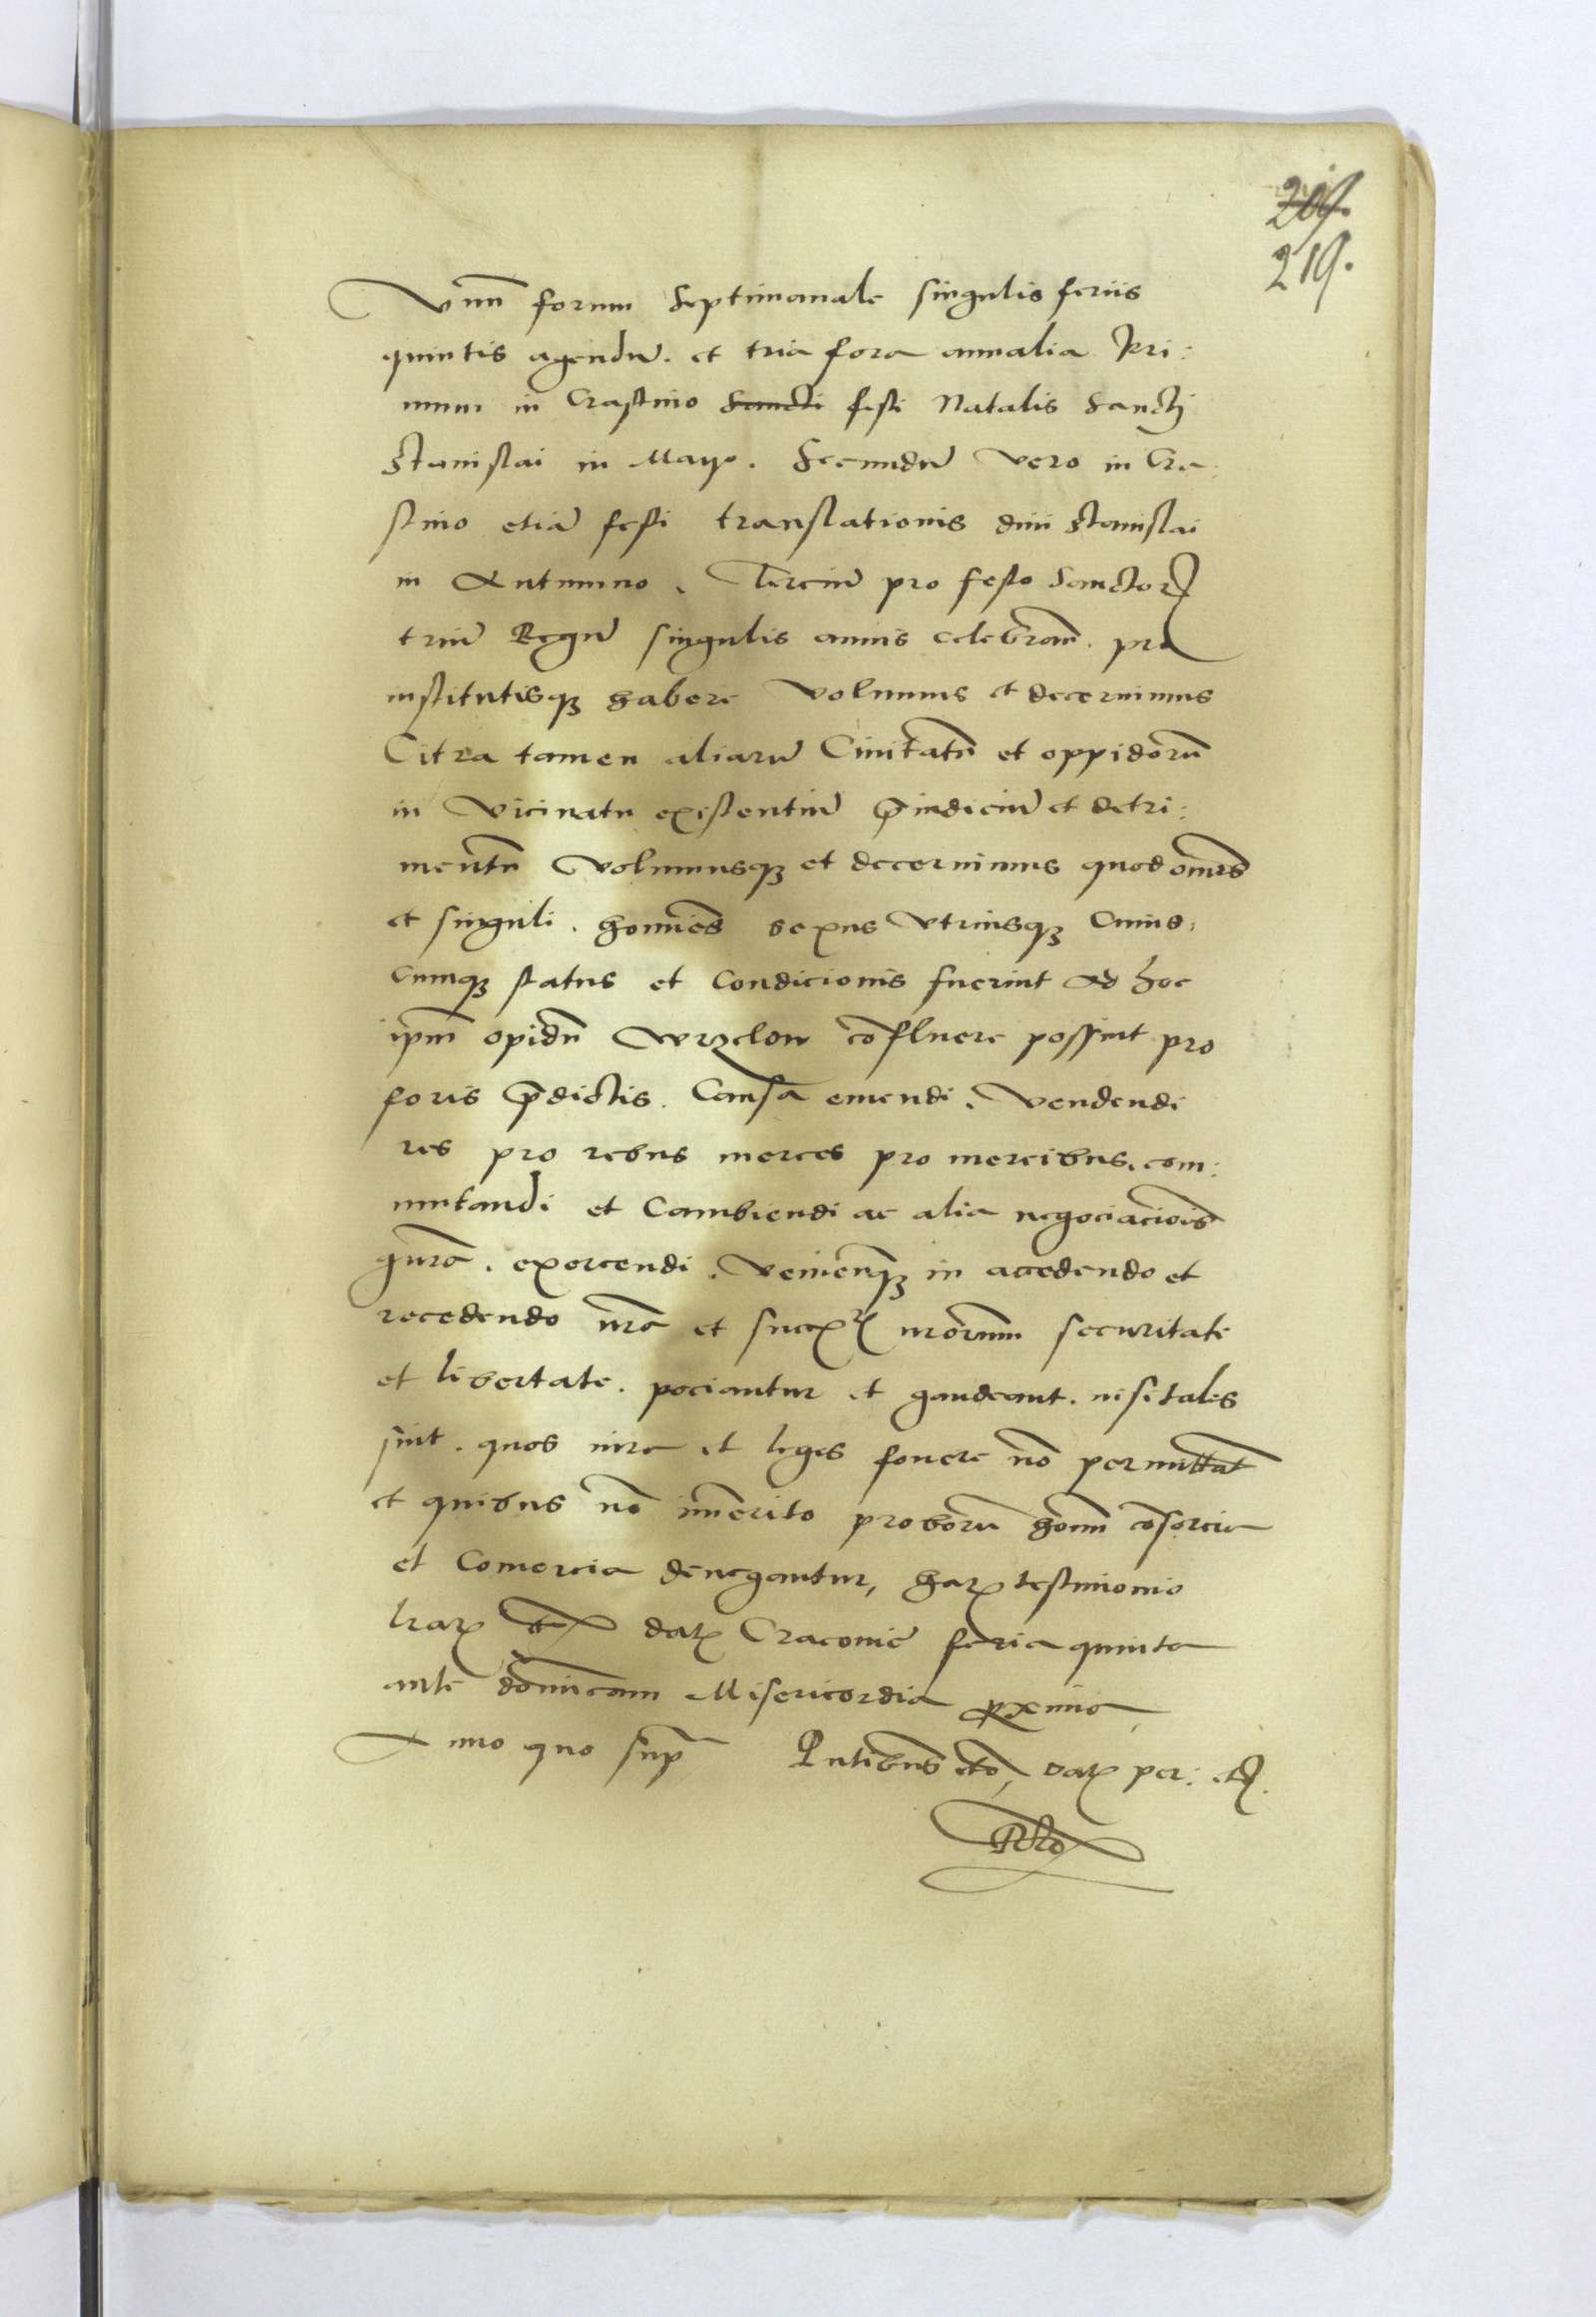 209.
219.
Vnu̅ forum Septimanale singulis feriis
quintis agendu̅. et tria fora annalia Pri:
mum in Crastino Sancti festi Natalis Sancti
Stanislai in Mayo. Secundu̅ vero in Cra:
stino etia̅ festi translationis diui Stanislai
in Autumno. Terciu̅ pro festo Sanctorꝝ
triu̅ Regu̅ singulis annis celebran̅. pro
institutisqꝫ habere Volumus et decernimus
Citra tamen aliaru̅ Ciuitatu̅ et oppidoru̅
in Vicinatu existentiu̅ p̅iudiciu̅ et detri:
mentu̅ Volumusqꝫ et decernimus quod om̅es
et singuli. homi̅es sexus Vtriusqꝫ Cuius:
cumqꝫ status et Condicionis fuerint Ad hoc
ip̅m opidu̅ Wrzelow co̅fluere possint pro
foris p̅dictis. Causa emendi. Vendendi
res pro rebus merces pro mercibus. com:
mutandi et Cambiendi ac alia negociacio̅is
gn̅ra. exercendi. Venien̅qꝫ in accedendo et
recedendo n̅ra et succꝝ n̅rorum securitate
et libertate. pociantur et gaudeant. nisi tales
sint. quos iura et leges fouere no̅ permitta̅t
et quibus no̅ im̅erito proboru̅ homi̅n co̅sorcia
et Comercia denegantur, harꝫ testimonio
l̅rarꝫ etc datꝫ Cracouie feria quinta
ante d̅omi̅cam Misericordia proxima
Anno quo sup̅ P̅ntibus etc, datꝫ per: etc.